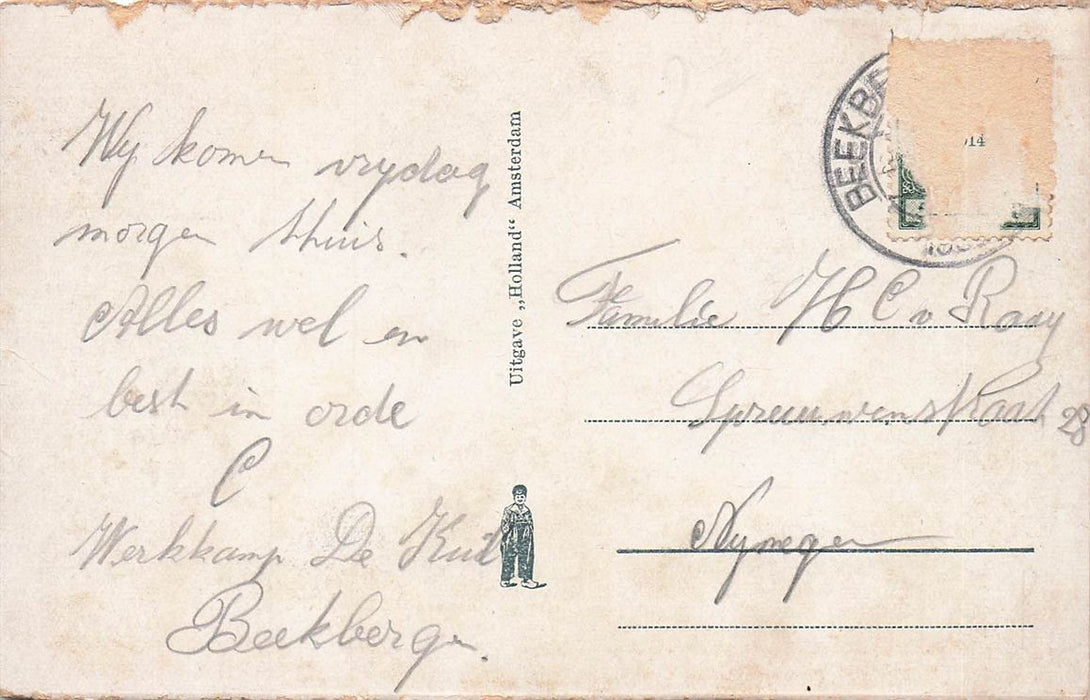 Wij komen vrijdag
morgen thuis.
Alles wel en
best in orde
C
Werkkamp De Kuil
Beekbergen.
Uitgave „Holland“ Amsterdam
BEEKBE
14
Familie H C v Raay
Spreeuwenstraat 28
Nijmegen